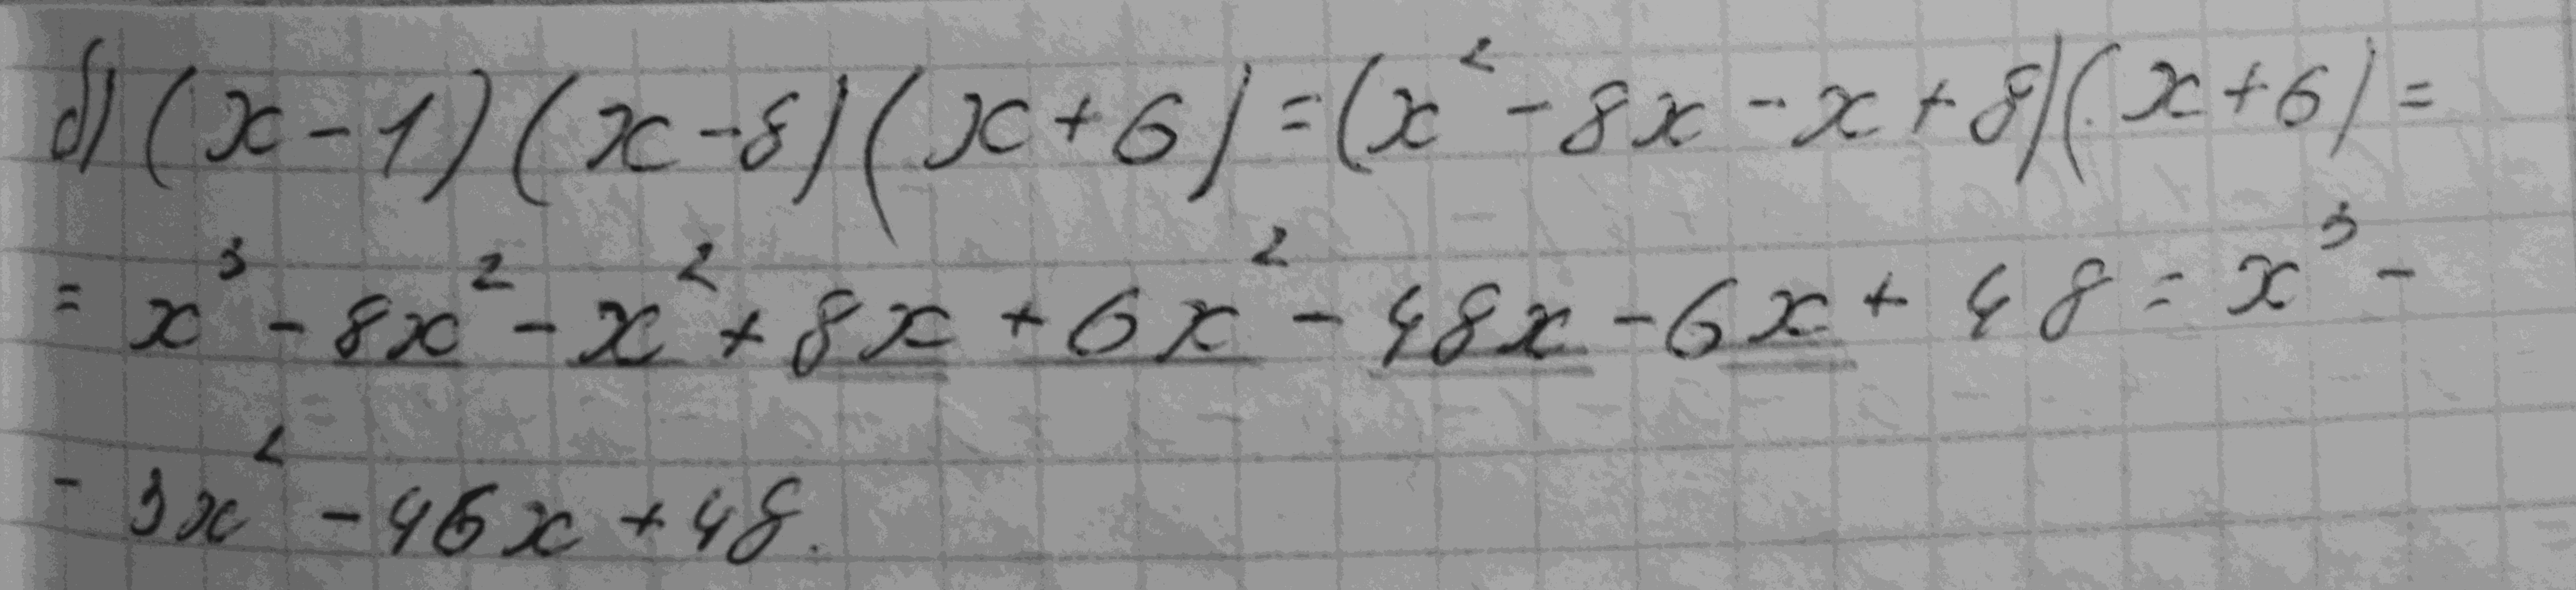 б) (x-1)(x-8)(x+6)=(x²-8x-x+8)(x+6)=
= x³-8x²-x²+8x+6x²-48x-6x+48=x³-
- 3x²-46x+48.